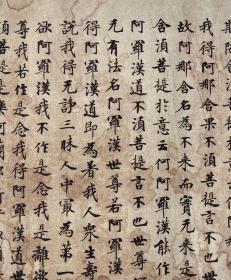 我得阿那含果不湏菩提言不
故阿那含名為不来而實无来是
含湏菩提於意云何阿羅漢能作
阿羅漢道不湏菩提言不也世
元有法名阿羅漢世尊若阿羅漢
得阿羅漢道即為著我人衆生壽
説我得无諍三昧人中冣為第一
欲阿羅漢我不作是念我是離欲
尊我若作是念我得阿羅漢道世
湏菩提是樂阿蘭那